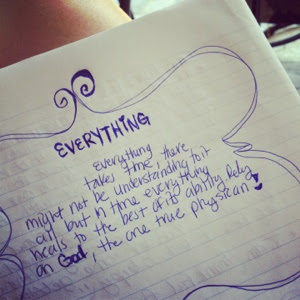 EVERYTHING
Everything
takes time, there
might not be understanding to it
all but in time everything
heals to the best of its ability. Rely
on God, the one true physician!